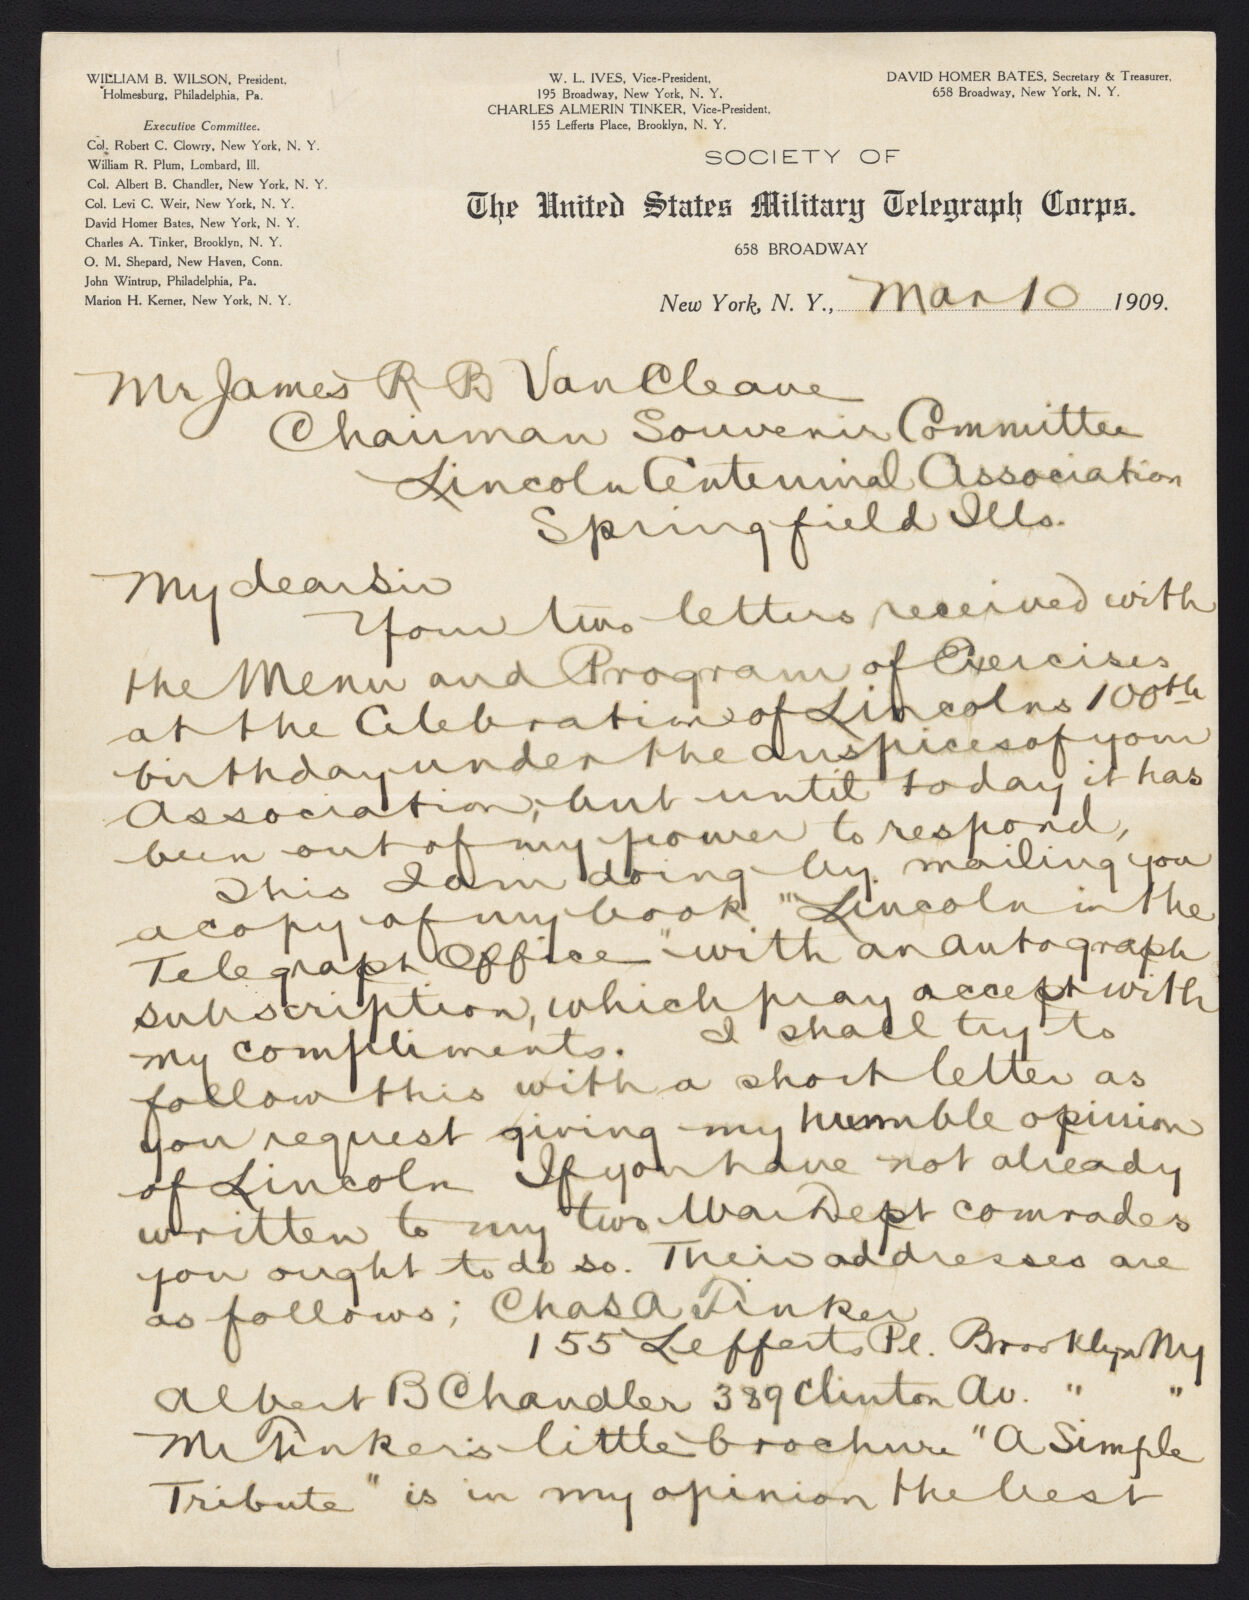 WILLIAM B. WILSON, President,
Holmesburg, Philadelphia, Pa.
Executive Committee.
Col. Robert C. Clowry, New York, N. Y.
William R. Plum, Lombard, Ill.
Col. Albert B. Chandler, New York, N. Y.
Col. Levi C. Weir, New York, N. Y.
David Homer Bates, New York, N. Y.
Charles A. Tinker, Brooklyn, N. Y.
O. M. Shepard, New Haven, Conn.
John Wintrup, Philadelphia, Pa.
Marion H. Kerner, New York, N. Y.
W. L. IVES, Vice-President,
195 Broadway, New York, N. Y.
CHARLES ALMERIN TINKER, Vice-President,
155 Lefferts Place, Brooklyn, N. Y.
DAVID HOMER BATES, Secretary & Treasurer,
658 Broadway, New York, N. Y.
SOCIETY OF
The United States Military Telegraph Corps.
658 BROADWAY
New York, N. Y., Mar 10 1909.
Mr James R B Van Cleave
Chairman Souvenir Committee
Lincoln Centennial Association
Springfield Ills.
My dear Sir
Your two letters received with
the Menu and Program of Exercises
at the Celebration of Lincolns 100th
birthday under the auspices of your
Association, but until today it has
been out of my power to respond,
This I am doing by mailing you
a copy of my book "Lincoln in the
Telegraph Office" with an autograph
subscription, which pray accept with
my compliments. I shall try to
follow this with a short letter as
you request giving my humble opinion
of Lincoln If you have not already
written to my two War Dept comrades
you ought to do so. Their addresses are
as follows; Chas A Tinker
155 Lefferts Pl. Brooklyn NY
Albert B Chandler 389 Clinton Av. " "
Mr Tinker's little brochure "A Simple
Tribute" is in my opinion the best